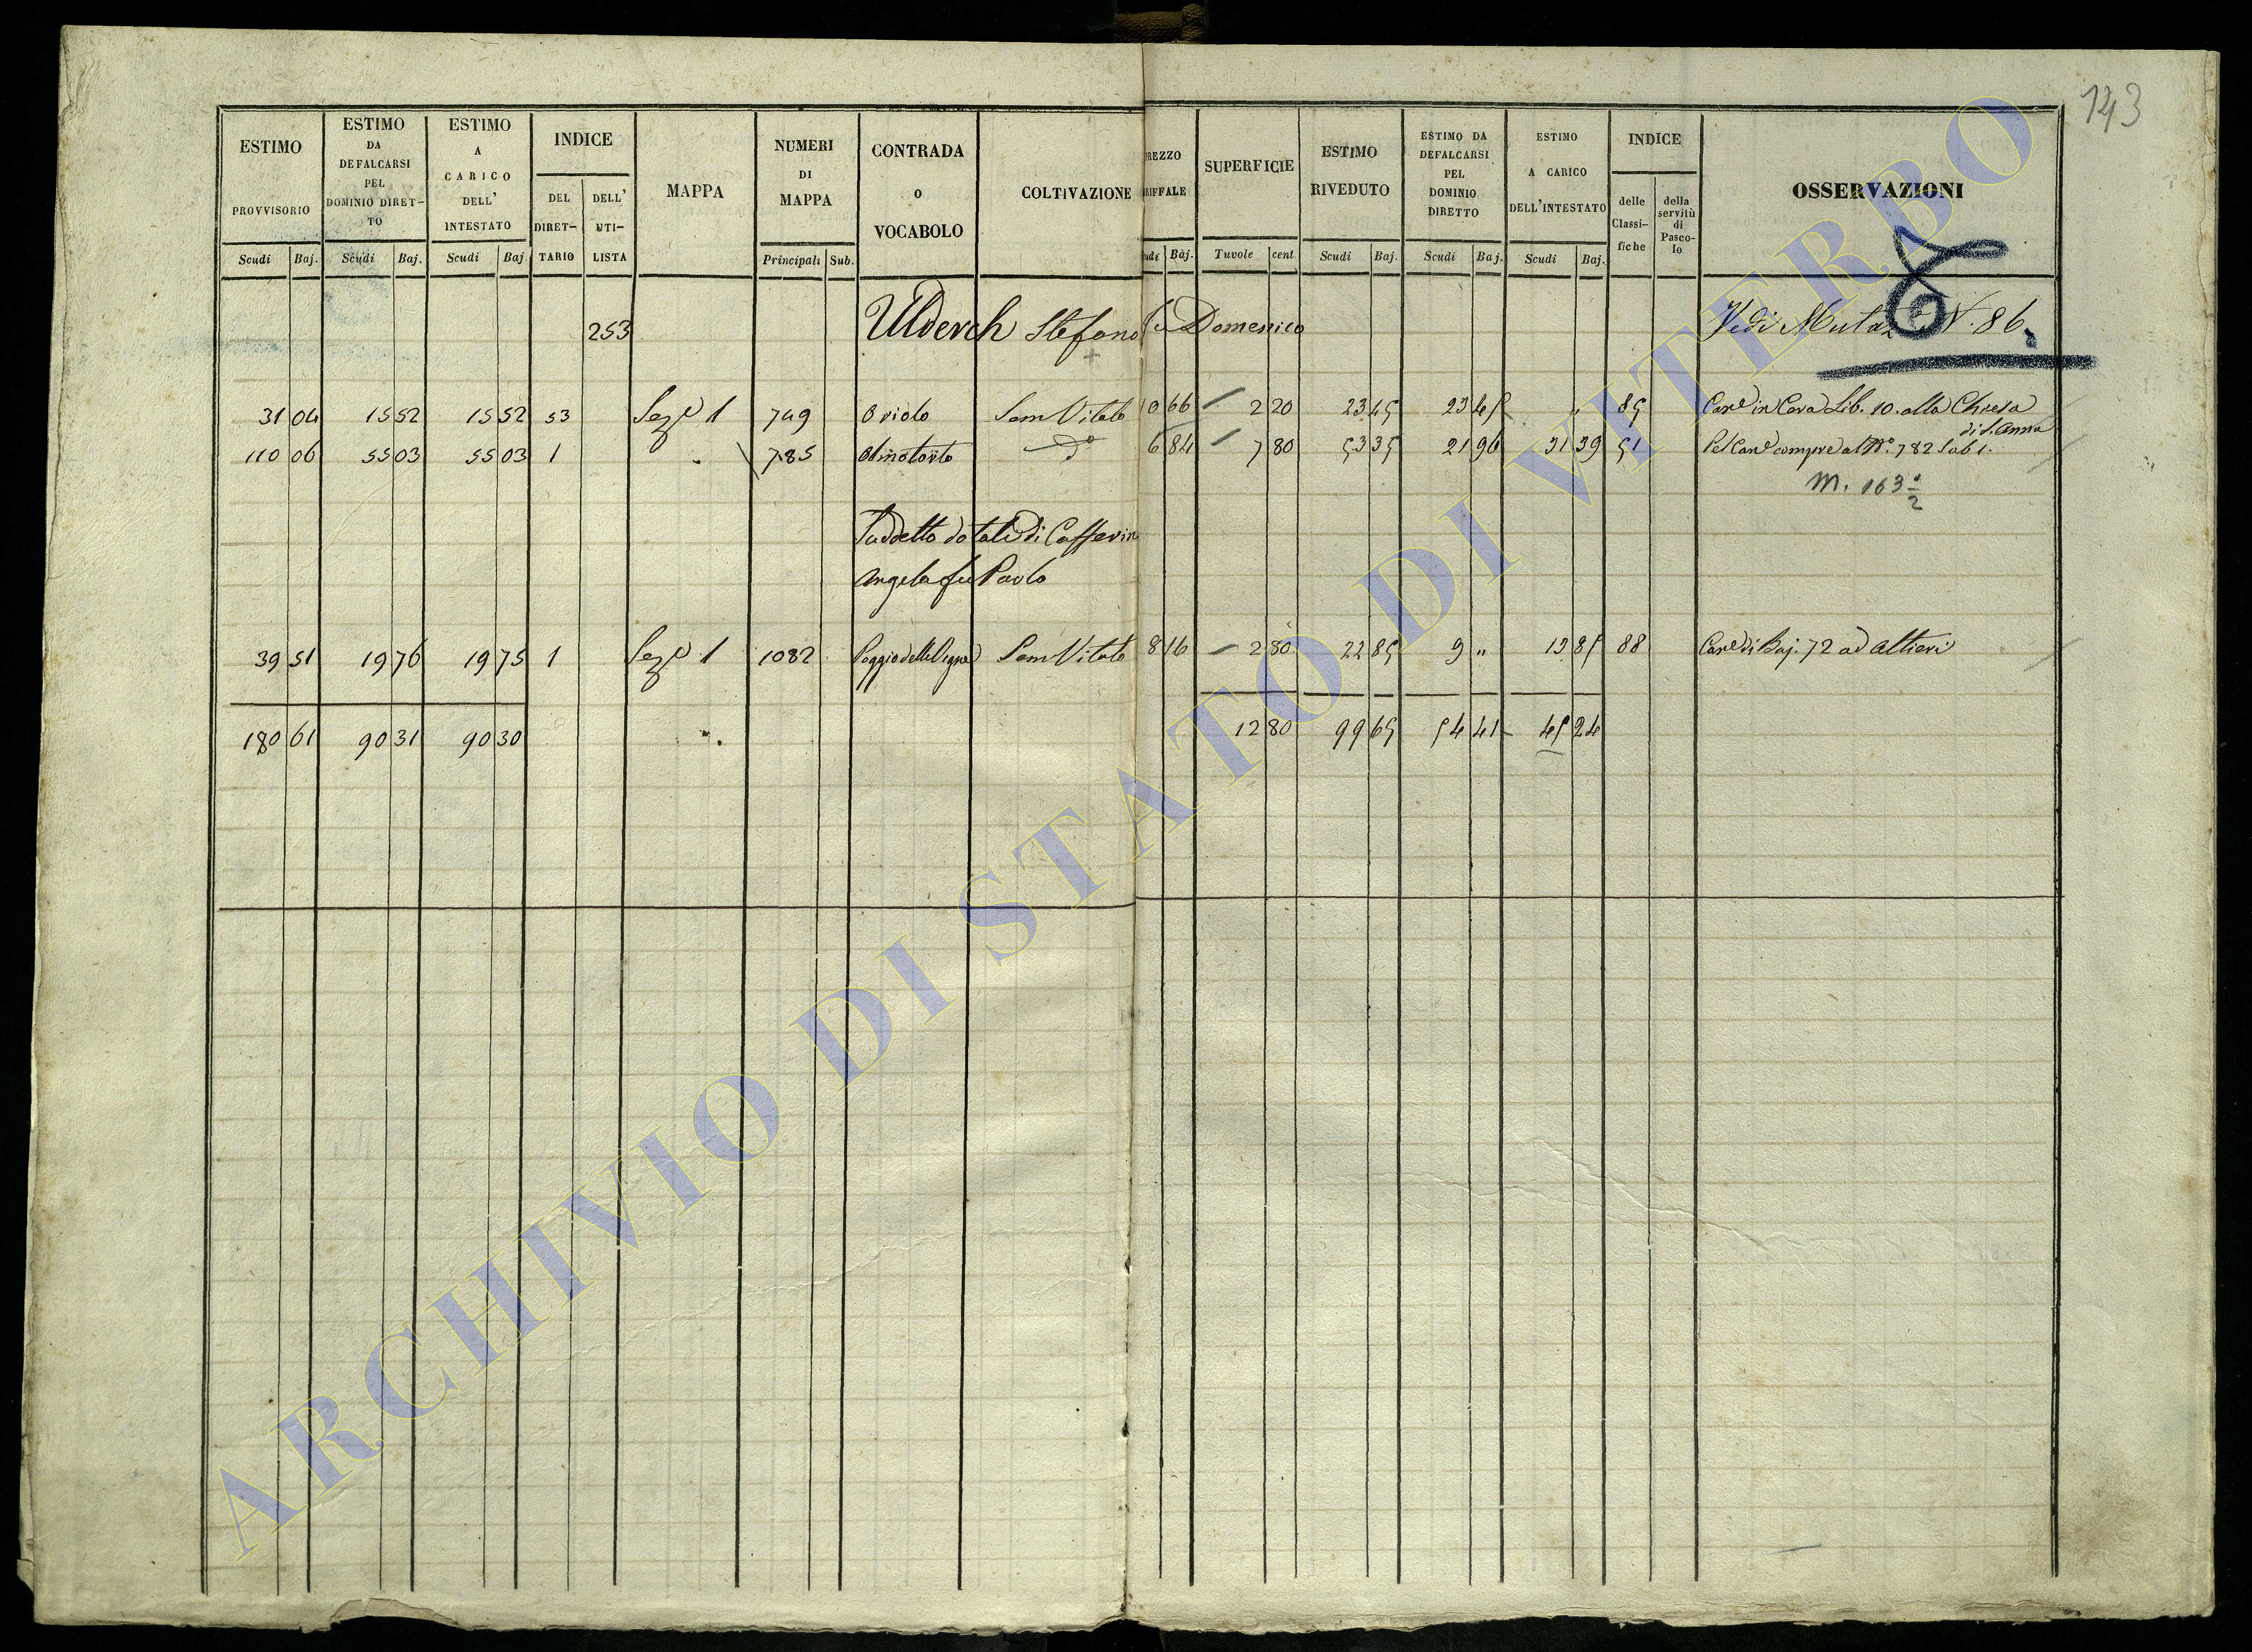 143
ESTIMO PROVVISORIO
ESTIMO DA DEFALCARSI PEL DOMINIO DIRET-TO
ESTIMO A CARICO DELL' INTESTATO
INDICE
DEL DIRET-TARIO
DELL' UTI-LISTA
MAPPA
NUMERI DI MAPPA
CONTRADA o VOCABOLO
COLTIVAZIONE
REZZO RIFFALE
SUPERFICIE
ESTIMO RIVEDUTO
ESTIMO DA DEFALCARSI PEL DOMINIO DIRETTO
ESTIMO A CARICO DELL'INTESTATO
INDICE
delle Classi-fiche
della servitù di Pasco-lo
OSSERVAZIONI
Scudi Baj. Scudi Baj. Scudi Baj. Principali Sub. udi Baj. Tavole cent. Scudi Baj. Scudi Baj. Scudi Baj.
253 Ulderch Stefano fu Domenico Vedi Mutaz N. 86
31 04 15 52 15 52 53 Sez. 1 749 Oriolo Sem Vitato 0 66 2 20 23 45 23 45 " 85 Can in Cera Lib. 10. alla Chiesa di S. Anna
110 06 55 03 55 03 1 785 Olmotorto do 6 84 7 80 53 35 21 96 31 39 51 Pel Can compre al N. 782 Sub 1.
M. 163 1/2
Suddetto dotale di Cafferin
Angela fu Paolo
39 51 19 76 19 75 1 Sez. 1 1082 Poggio delle Vigne Sem Vitato 8 16 2 80 22 85 9 " 13 85 88 Can di Baj. 72 ad Altieri
180 61 90 31 90 30 12 80 99 65 54 41 45 24
ARCHIVIO DI STATO DI VITERBO